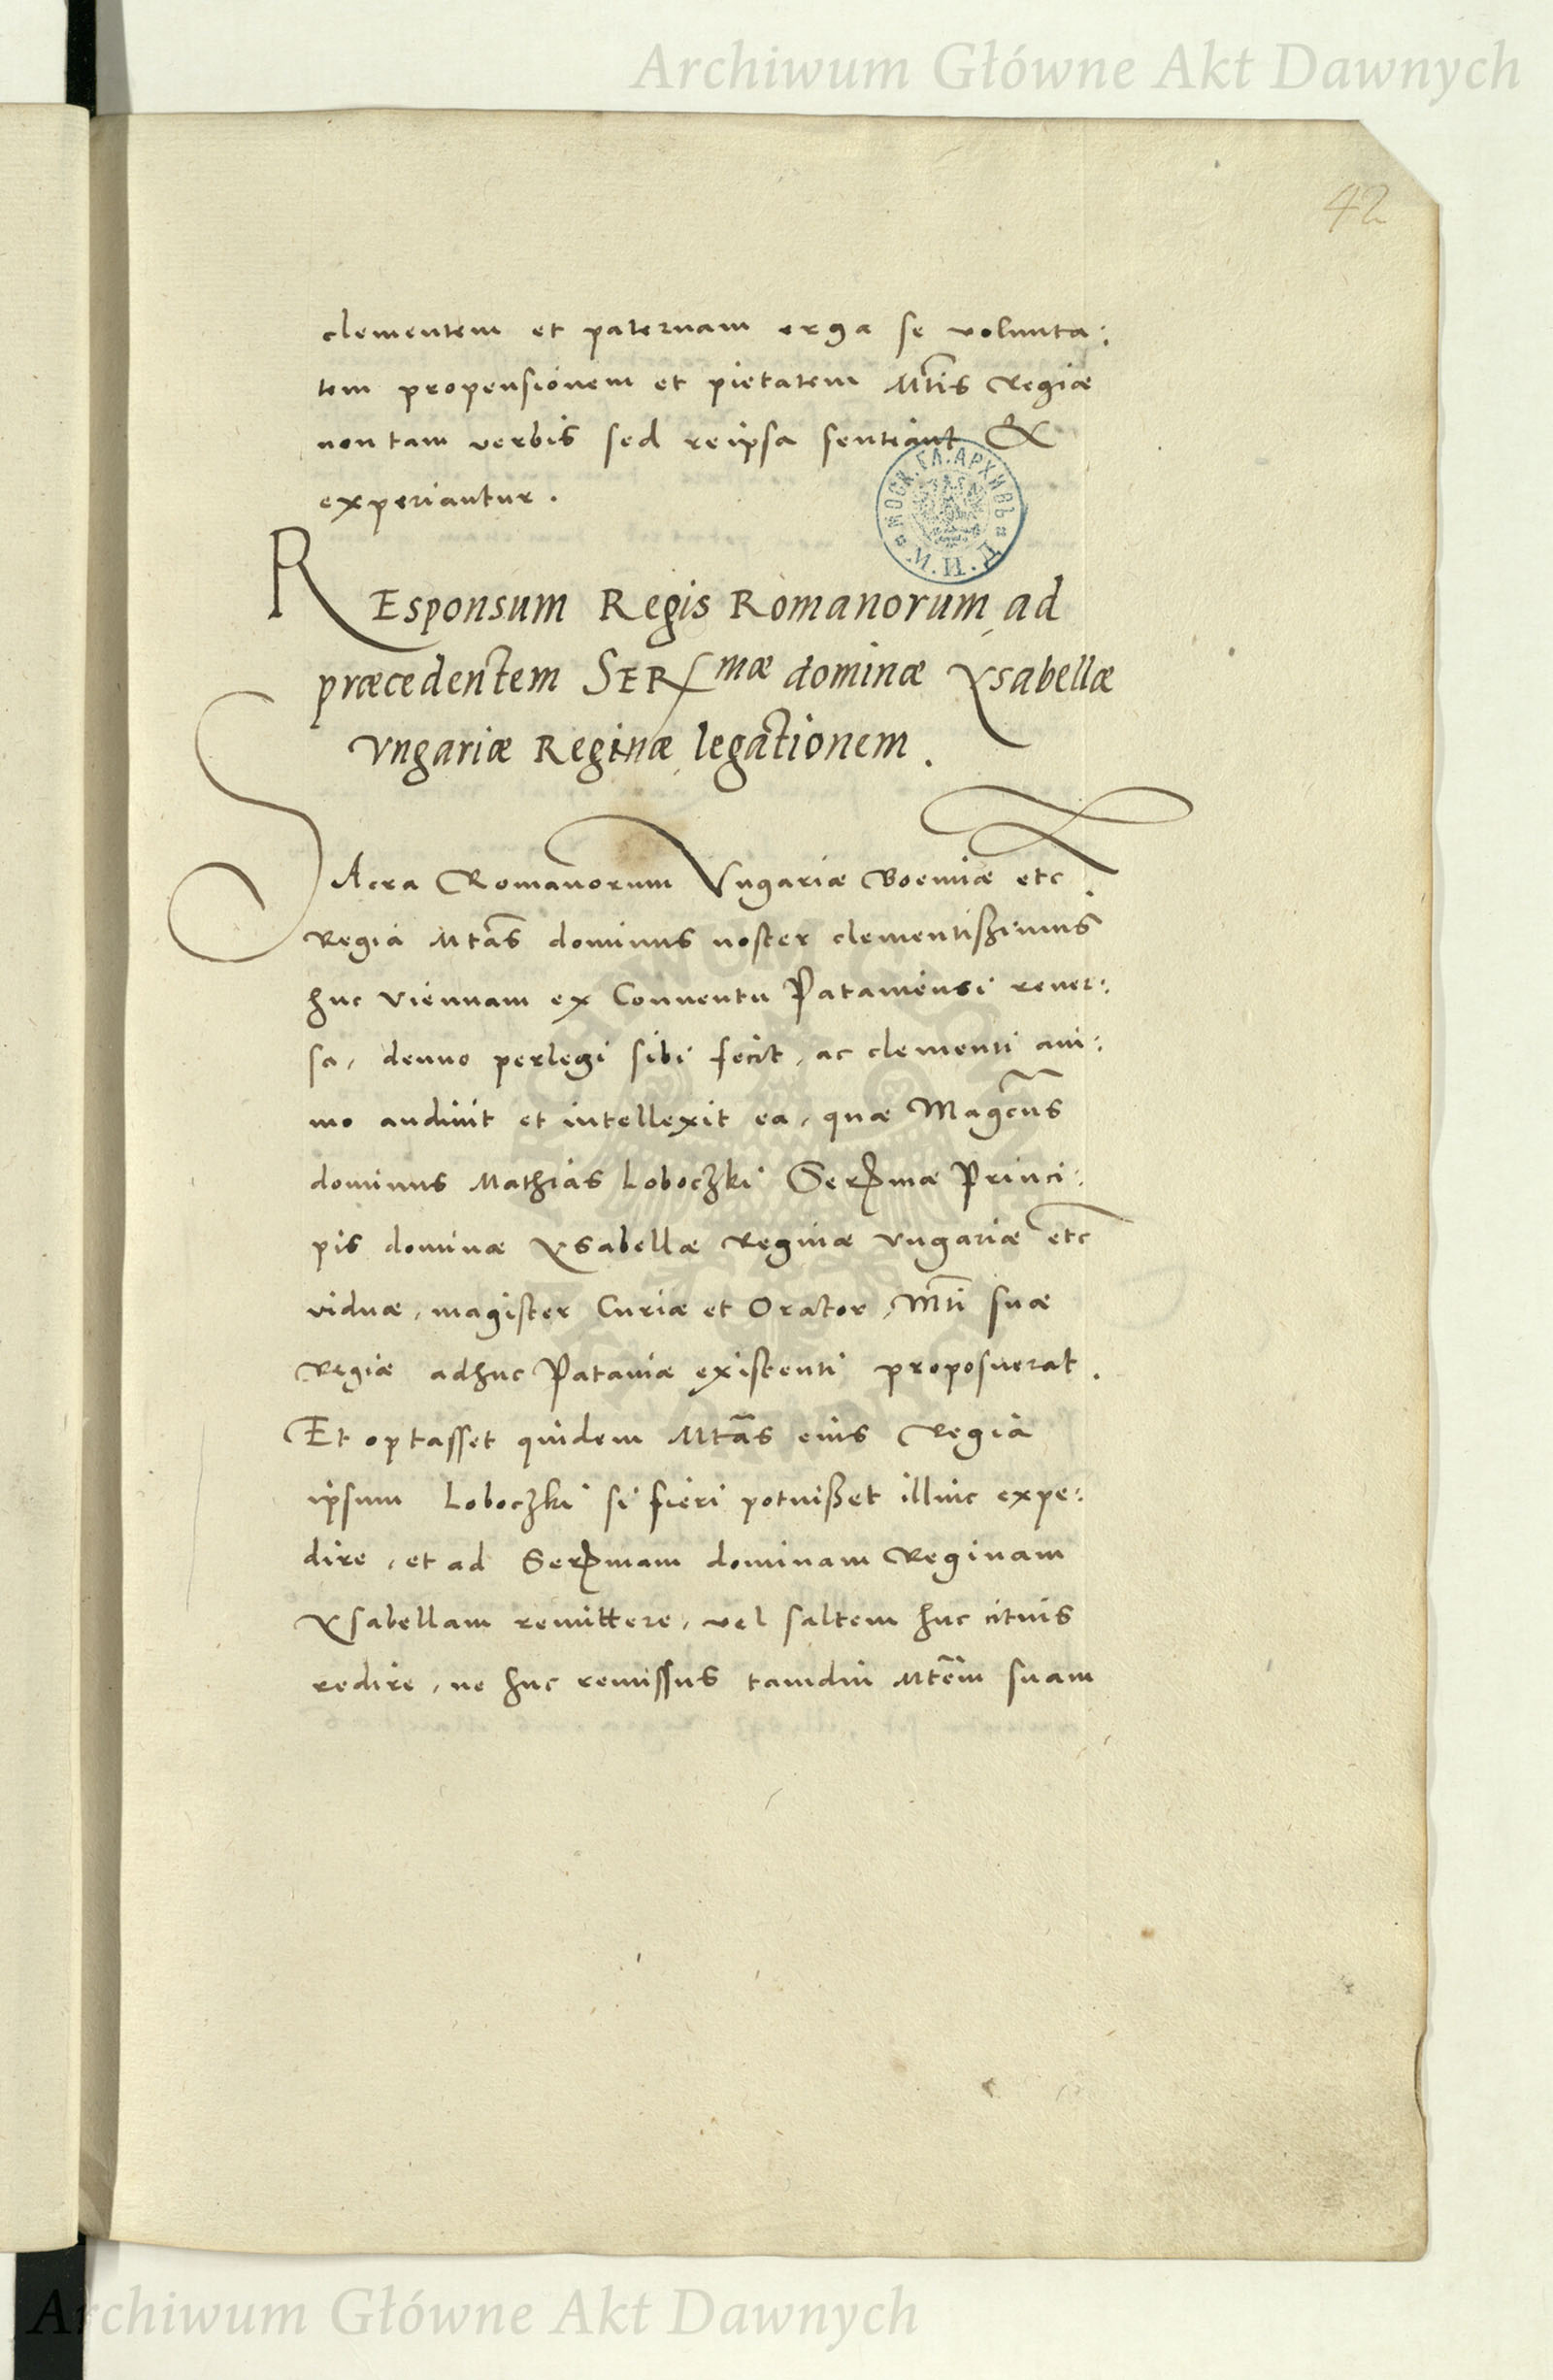 Archiwum Główne Akt Dawnych
42
clementem et paternam erga se volunta:
tem propensionem et pietatem Mtis Regiæ
non tam verbis sed reipsa sentiant &
experiantur.
МОСК. ГЛ. АРХИВЪ
М. И. Д.
REsponsum Regis Romanorum ad
præcedentem SERmæ dominæ Ysabellæ
Vngariæ Reginæ legationem.
SAcra Romanorum Vngariæ Boemiæ etc.
Regia Mtas dominus noster clementißimus
huc Viennam ex Conuentu Patauiensi reuer:
sa, denuo perlegi sibi fecit, ac clementi ani:
mo audiuit et intellexit ea, quæ Magcus
dominus Mathias Loboczki Sermæ Princi:
pis dominæ Ysabellæ Reginæ Vngariæ etc
viduæ, magister Curiæ et Orator, Mti suæ
Regiæ adhuc Patauiæ existenti proposuerat.
Et optasset quidem Mtas eius Regia
ipsum Loboczki si fieri potuißet illinc expe:
dire, et ad Sermam dominam Reginam
Ysabellam remittere, vel saltem huc citius
redire, ne huc remissus tamdiu Mtem suam
Archiwum Główne Akt Dawnych